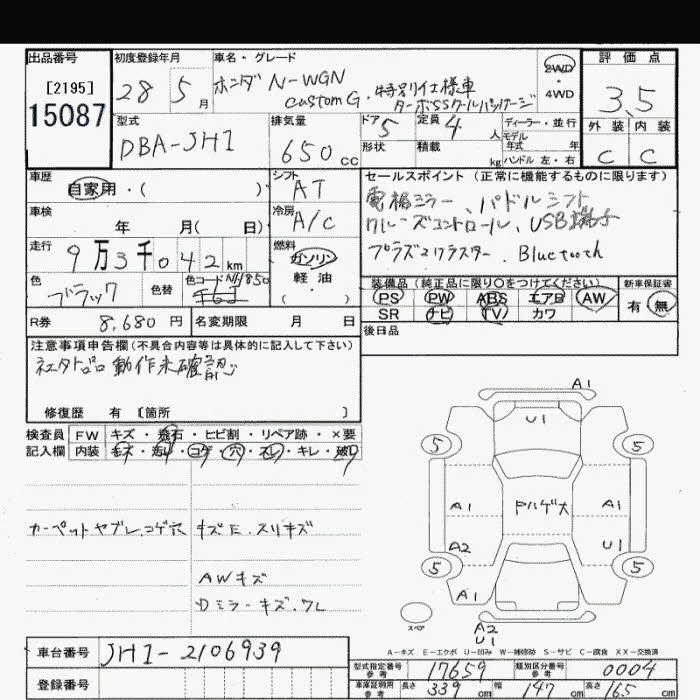 出品番号 初度登録年月 車名・グレード 2WD 評価点
[2195] 28 5月 ホンダ N-WGN 4WD 3.5
15087 Custom G・特別仕様車 ターボSSクールパッケージ
型式 排気量 ドア 5 定員 4人 ディーラー・並行 外装 内装
DBA-JH1 650cc 形状 積載 kg モデル年式 年 C C
ハンドル 左・右
車歴 シフト セールスポイント (正常に機能するものに限ります)
自家用・( ) AT 電格ミラー、パドルシフト
車検 冷房 クルーズコントロール、USB端子
年 月( 日) A/C プラズマクラスター、Bluetooth
走行 燃料
9万3千042km ガソリン
色 色替 色コード NH850 軽油 装備品 (純正品に限り○をつけてください) 新車保証書
ブラック ・( ) PS PW ABS エアB AW 有 無
SR ナビ TV カワ
R券 8,680円 名変期限 月 日 後日品
注意事項申告欄 (不具合内容等は具体的に記入して下さい)
社外品動作未確認
修復歴 有 [箇所 ]
検査員 FW キズ・飛石・ヒビ割・リペア跡・×要
記入欄 内装 キズ・汚れ・コゲ・穴・スレ・キレ・破れ
カーペットヤブレ、コゲ穴 キズ E、スリキズ
AWキズ
Dミラーキズ、ワレ
A1
U1
5 5
A1 ドハゲ大 A1
A2 U1
5 5
A1
スペア A2
U1
A-キズ E-エクボ U-凹み W-補修跡 S-サビ C-腐食 XX-交換済
車台番号 JH1-2106939
登録番号
型式指定番号 参考 17659 類別区分番号 参考 0004
車庫証明用 参考 長さ 339cm 幅 147cm 高さ 165cm